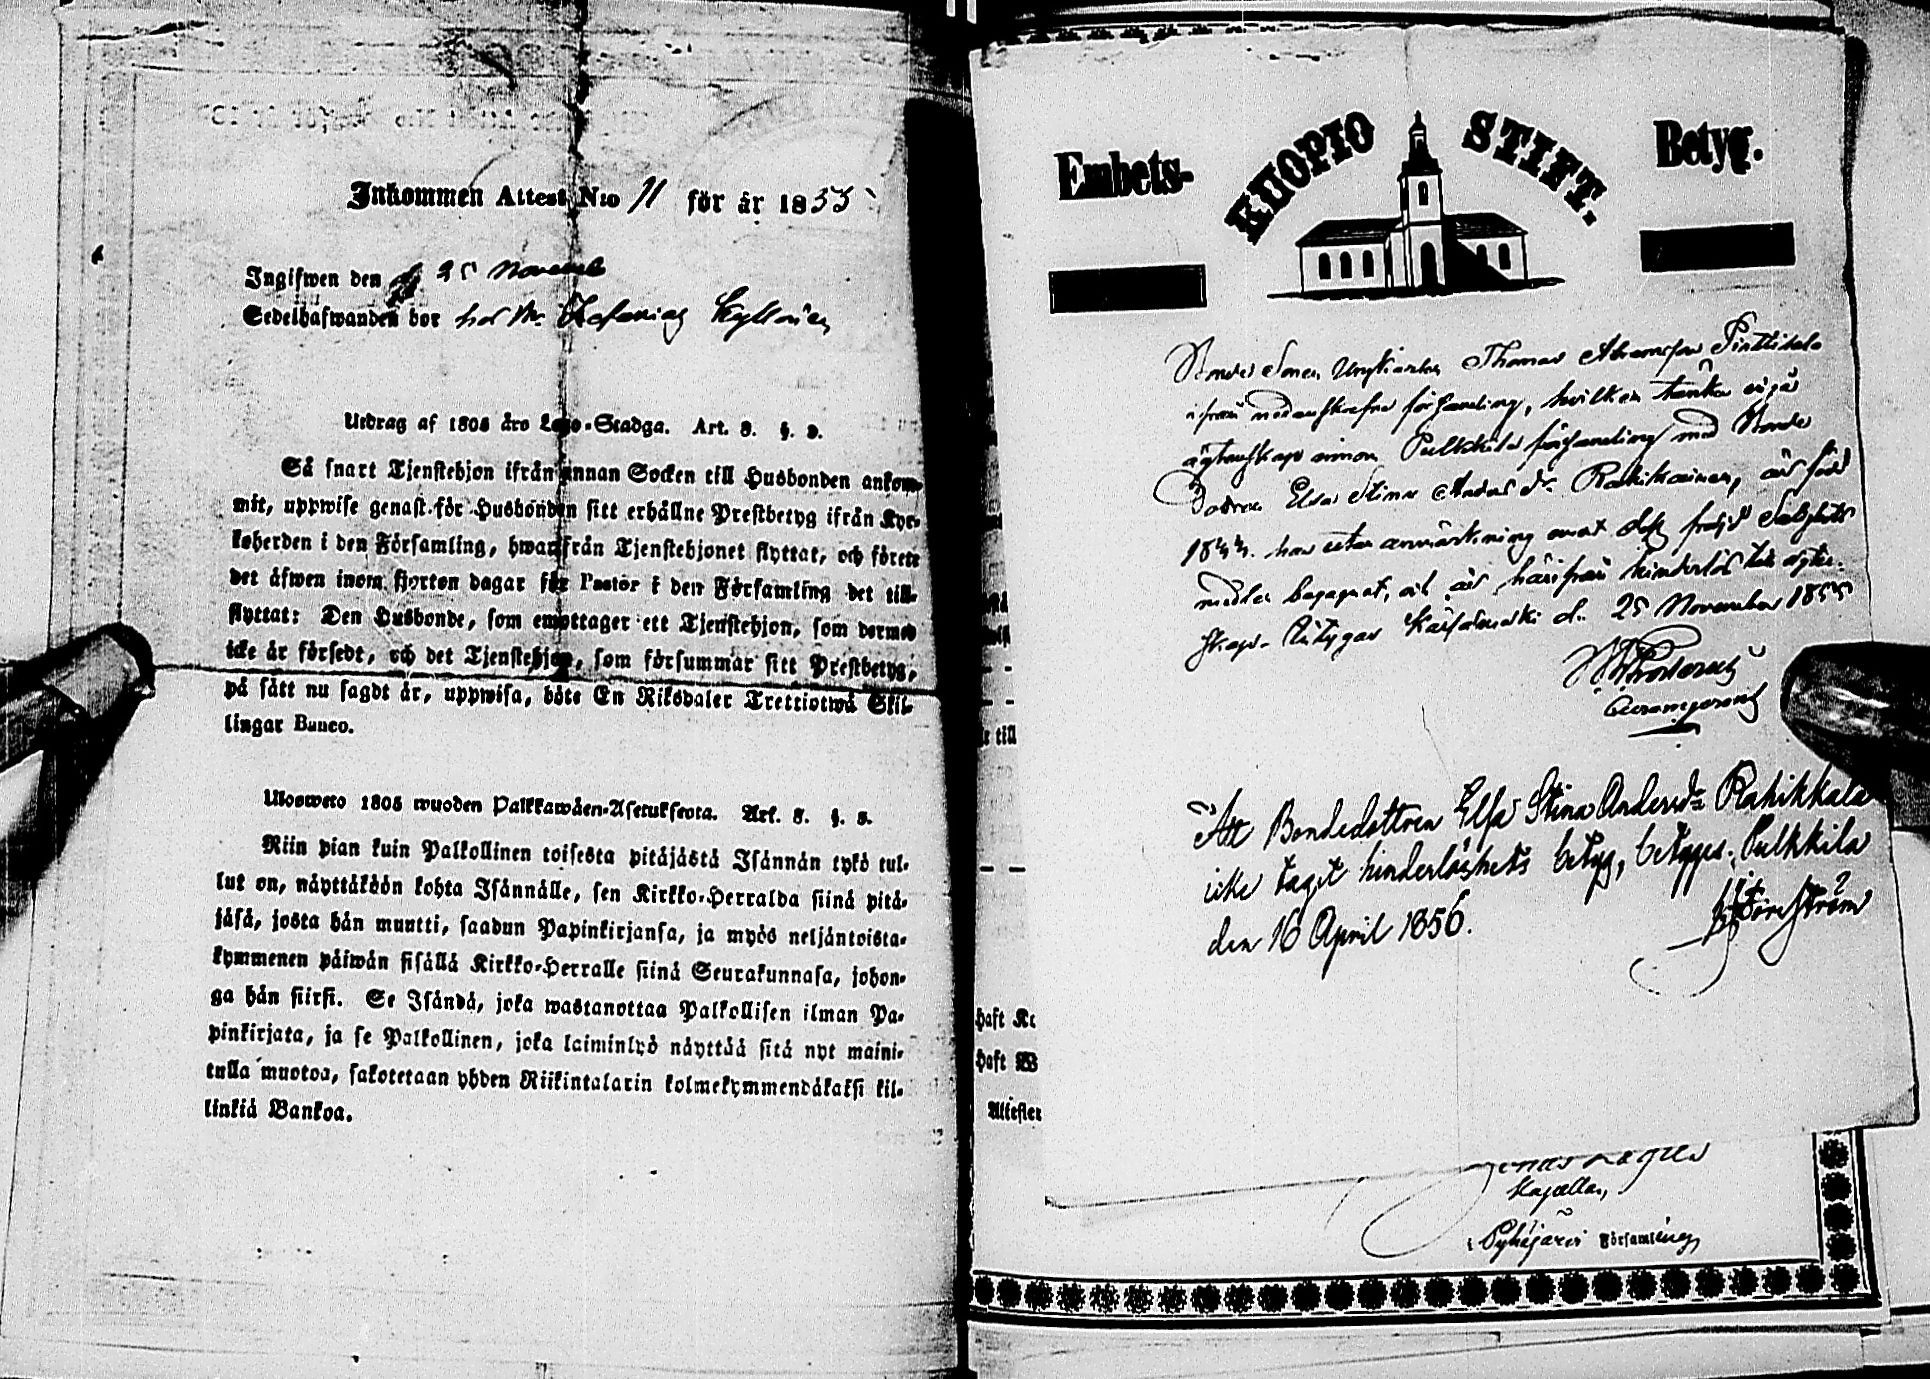 Inkommen Attest N:o 11 för år 1855
Ingifwen den 25 November
Sedelhafwanden bor hos
Utdrag af 1805 års Lego-Stadga. Art. 8. §. 5.
Så snart Tjenstehjon ifrån annan Socken till Husbonden ankom-
mit, uppwise genast för Husbonden sitt erhållne Prestbetyg ifrån Kyr-
koherden i den Församling, hwarifrån Tjenstehjonet flyttat, och förete
det äfwen inom fjorton dagar för Pastor i den Församling det till-
flyttat: Den Husbonde, som emottager ett Tjenstehjon, som dermed
icke är försedt, och det Tjenstehjon, som försummar sitt Prestbetyg,
på sätt nu sagdt är, uppwisa, böte En Riksdaler Trettiotwå Skil-
lingar Banco.
Ulosweto 1805 wuoden Palkkawäen-Asetuksesta. Art. 8. §. 5.
Niin pian kuin Palkollinen toisesta pitäjästä Isännän tykö tul-
lut on, näyttäköön kohta Isännälle, sen Kirkko-Herralda siinä pitä-
jäsä, josta hän muutti, saadun Papinkirjansa, ja myös neljäntoista-
kymmenen päiwän sisällä Kirkko-Herralle siinä Seurakunnasa, johon-
ga hän siirsi. Se Isändä, joka wastanottaa Palkollisen ilman Pa-
pinkirjata, ja se Palkollinen, joka laiminlyö näyttää sitä nyt maini-
tulla muotoa, sakotetaan yhden Riikintalarin kolmekymmendäkaksi kil-
linkiä Bankoa.
Embets- KUOPIO STIFT. Betyg.
Bonde Sonen Ynglingen Thomas Abramsson Pirttikala
ifrån nedanskrefne församling, hvilken tänker ingå
ägtenskap innom Pulkkila församling med Bonde
Dottren Elsa Stina Anders dr Rahikainen, är född
1844. har utan anmärkning emot dess frejd Salighets
medlen begagnat, och är härifrån hinderlös till ägten-
skaps. Betygar Kärsämäki d. 25 November 1855
Att Bondedottren Elsa Stina Andersdr Rahikkala
icke tagit hinderlöshets betyg, betygas. Pulkkila
den 16 April 1856.
till
haft
haft
Attester
Kapellan,
i Pyhäjärvi Församling